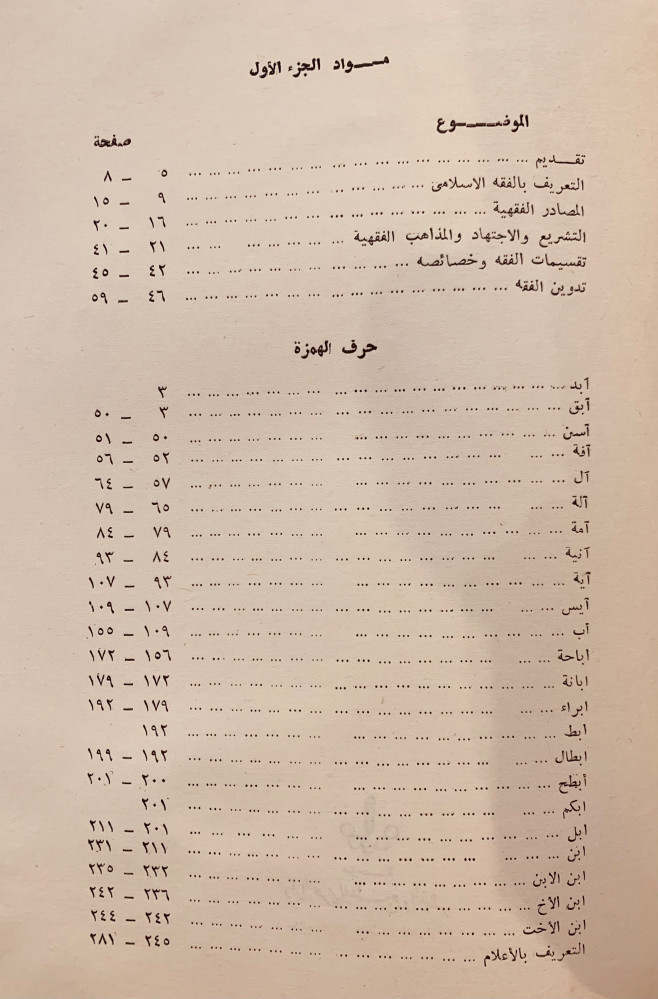 مـــواد الجزء الأول
الموضـــــوع
صفحة
تقـــديم ... ٥ – ٨
التعريف بالفقه الاسلامى ... ٩ – ١٥
المصادر الفقهية ... ١٦ – ٢٠
التشريع والاجتهاد والمذاهب الفقهية ... ٢١ – ٤١
تقسيمات الفقه وخصائصه ... ٤٢ – ٤٥
تدوين الفقه ... ٤٦ – ٥٩
حرف الهمزة
آبد ... ٣
آبق ... ٣ – ٥٠
آسن ... ٥٠ – ٥١
آفة ... ٥٢ – ٥٦
آل ... ٥٧ – ٦٤
آلة ... ٦٥ – ٧٩
آمة ... ٧٩ – ٨٤
آنية ... ٨٤ – ٩٣
آية ... ٩٣ – ١٠٧
آيس ... ١٠٧ – ١٠٩
أب ... ١٠٩ – ١٥٥
اباحة ... ١٥٦ – ١٧٢
ابانة ... ١٧٢ – ١٧٩
ابراء ... ١٧٩ – ١٩٢
أبط ... ١٩٢
ابطال ... ١٩٢ – ١٩٩
أبطح ... ٢٠٠ – ٢٠١
ابكم ... ٢٠١
ابل ... ٢٠١ – ٢١١
ابن ... ٢١١ – ٢٣١
ابن الابن ... ٢٣٢ – ٢٣٥
ابن الأخ ... ٢٣٦ – ٢٤٢
ابن الأخت ... ٢٤٢ – ٢٤٤
التعريف بالأعلام ... ٢٤٥ – ٢٨١